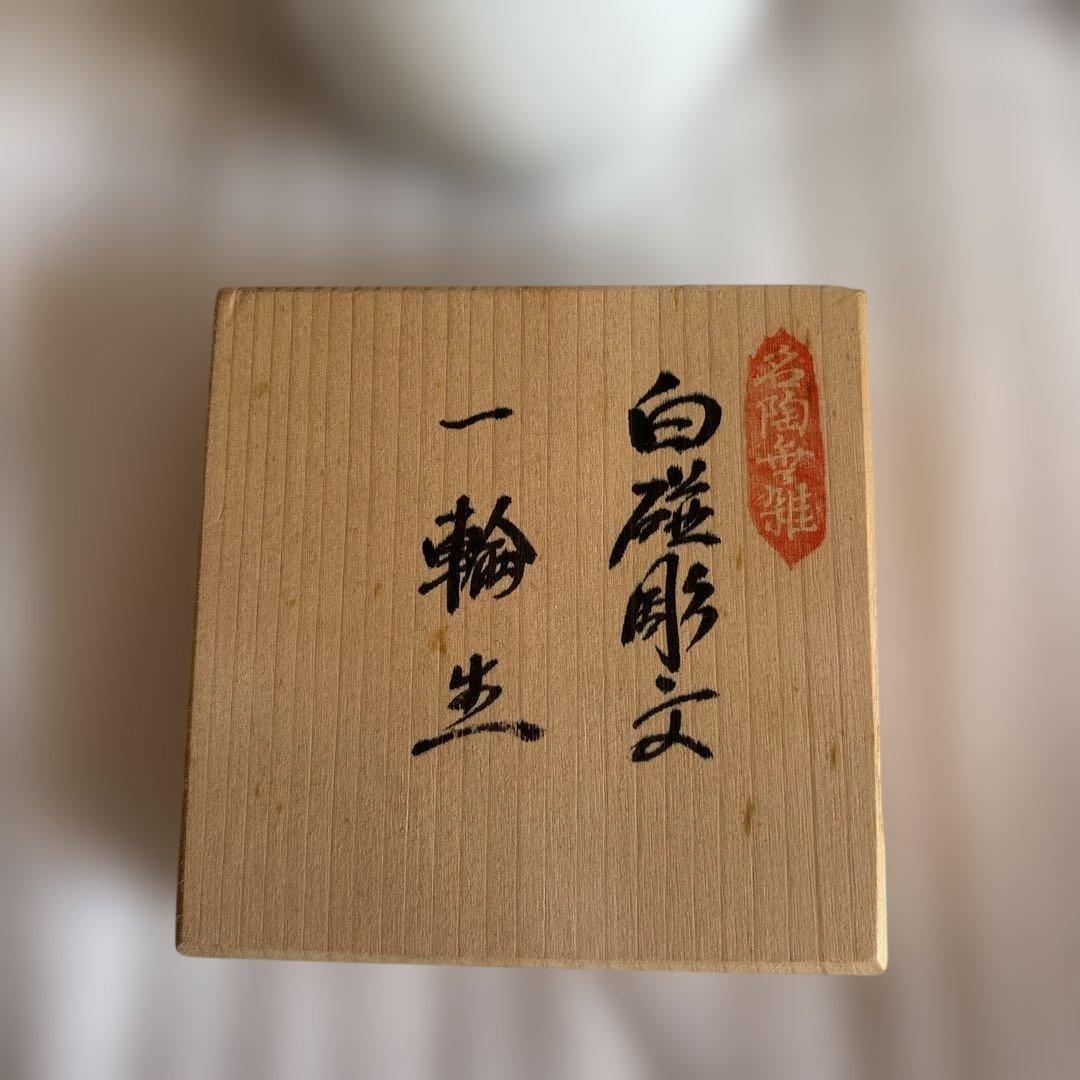 名陶無雑
白磁彫文
一輪生